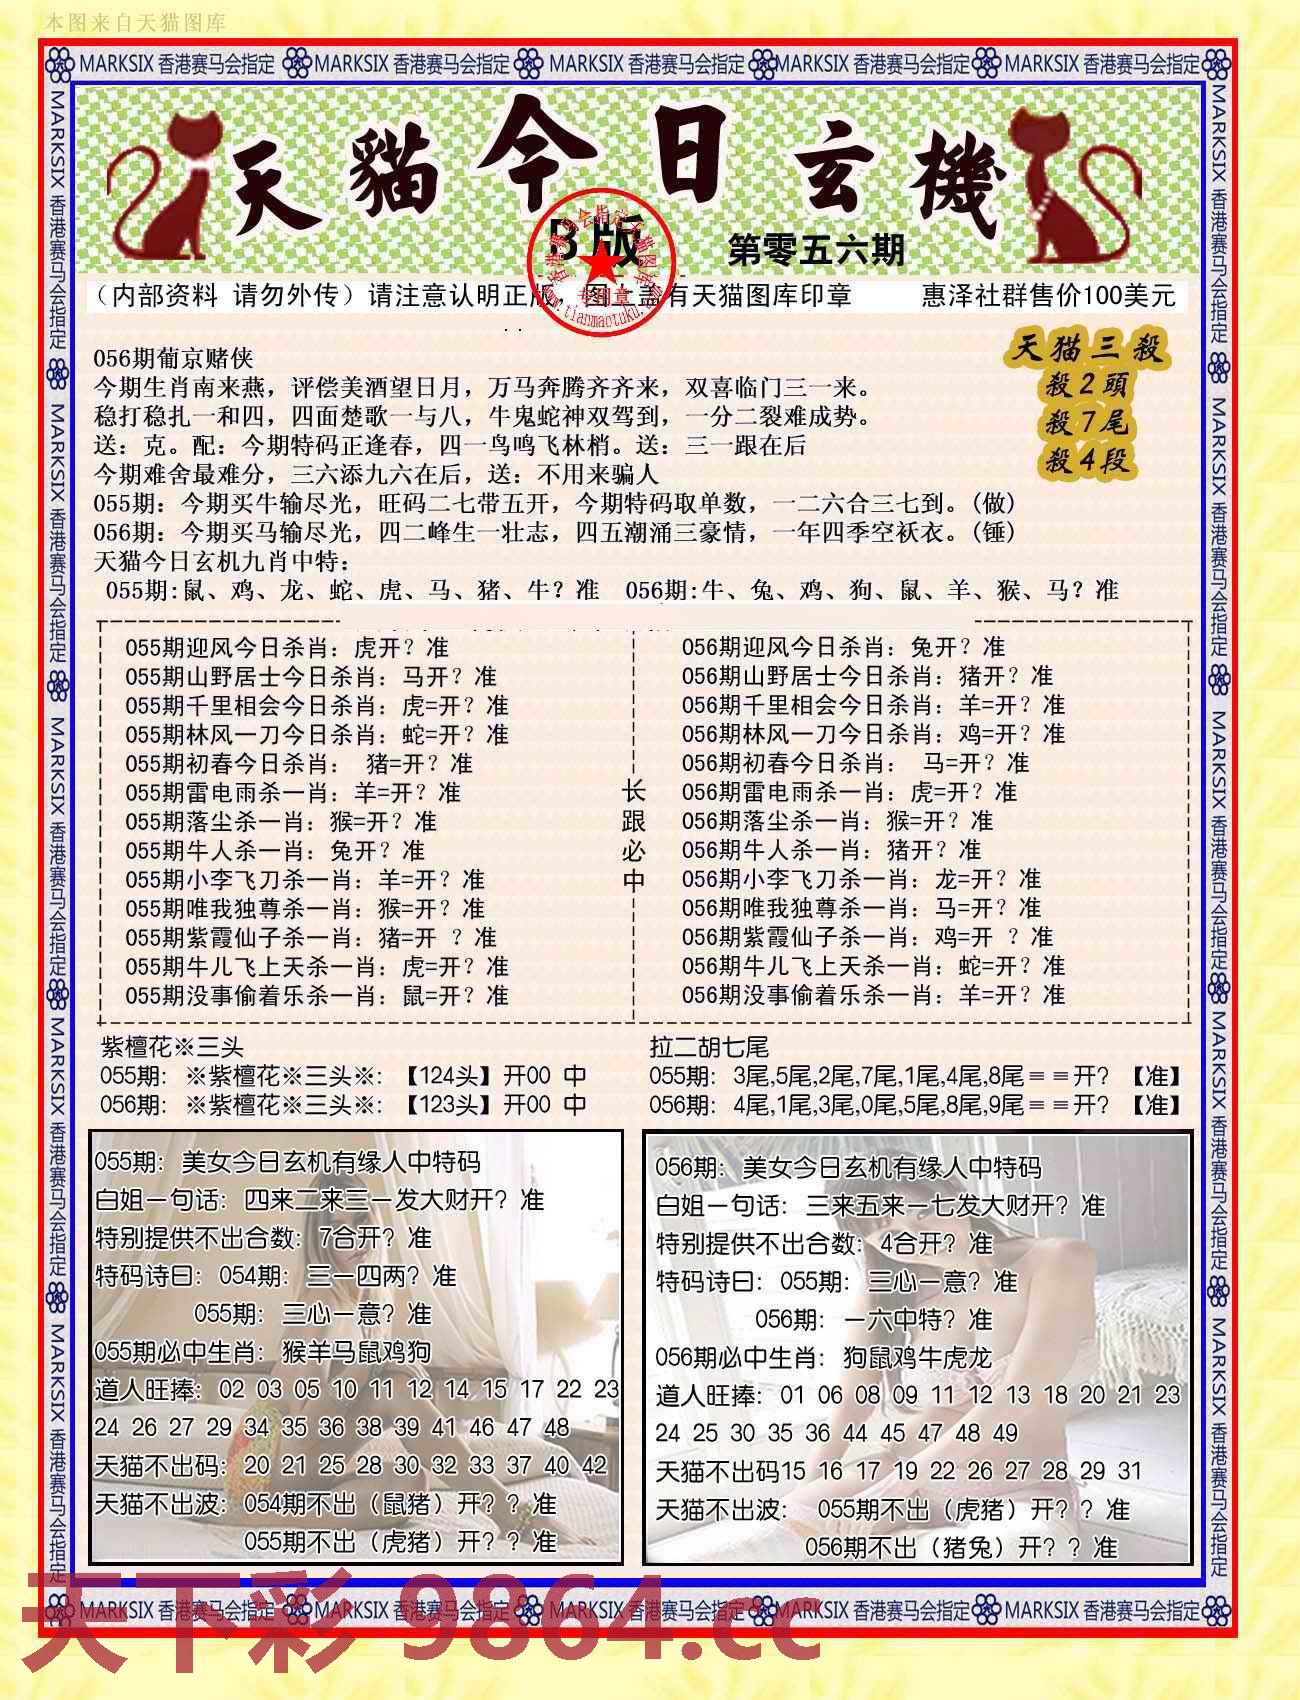 本图来自天猫图库
MARKSIX 香港赛马会指定 MARKSIX 香港赛马会指定 MARKSIX 香港赛马会指定 MARKSIX 香港赛马会指定 MARKSIX 香港赛马会指定
MARKSIX 香港赛马会指定 MARKSIX 香港赛马会指定 MARKSIX 香港赛马会指定 MARKSIX 香港赛马会指定 MARKSIX 香港赛马会指定
MARKSIX 香港赛马会指定 MARKSIX 香港赛马会指定 MARKSIX 香港赛马会指定 MARKSIX 香港赛马会指定 MARKSIX 香港赛马会指定
天貓今日玄機
B版
第零五六期
专用章
www.tianmaotuku.com
（内部资料 请勿外传）请注意认明正版，图上盖有天猫图库印章
惠泽社群售价100美元
天猫三殺
殺2頭
殺7尾
殺4段
056期葡京赌侠
今期生肖南来燕，评偿美酒望日月，万马奔腾齐齐来，双喜临门三一来。
稳打稳扎一和四，四面楚歌一与八，牛鬼蛇神双驾到，一分二裂难成势。
送：克。配：今期特码正逢春，四一鸟鸣飞林梢。送：三一跟在后
今期难舍最难分，三六添九六在后，送：不用来骗人
055期：今期买牛输尽光，旺码二七带五开，今期特码取单数，一二六合三七到。(做)
056期：今期买马输尽光，四二峰生一壮志，四五潮涌三豪情，一年四季空袄衣。(锤)
天猫今日玄机九肖中特：
055期:鼠、鸡、龙、蛇、虎、马、猪、牛？准 056期:牛、兔、鸡、狗、鼠、羊、猴、马？准
055期迎风今日杀肖：虎开？准
055期山野居士今日杀肖：马开？准
055期千里相会今日杀肖：虎=开？准
055期林风一刀今日杀肖：蛇=开？准
055期初春今日杀肖： 猪=开？准
055期雷电雨杀一肖：羊=开？准
055期落尘杀一肖：猴=开？准
055期牛人杀一肖：兔开？准
055期小李飞刀杀一肖：羊=开？准
055期唯我独尊杀一肖：猴=开？准
055期紫霞仙子杀一肖：猪=开 ？准
055期牛儿飞上天杀一肖：虎=开？准
055期没事偷着乐杀一肖：鼠=开？准
长跟必中
056期迎风今日杀肖：兔开？准
056期山野居士今日杀肖：猪开？准
056期千里相会今日杀肖：羊=开？准
056期林风一刀今日杀肖：鸡=开？准
056期初春今日杀肖： 马=开？准
056期雷电雨杀一肖：虎=开？准
056期落尘杀一肖：猴=开？准
056期牛人杀一肖：猪开？准
056期小李飞刀杀一肖：龙=开？准
056期唯我独尊杀一肖：马=开？准
056期紫霞仙子杀一肖：鸡=开 ？准
056期牛儿飞上天杀一肖：蛇=开？准
056期没事偷着乐杀一肖：羊=开？准
紫檀花※三头
055期：※紫檀花※三头※：【124头】开00 中
056期：※紫檀花※三头※：【123头】开00 中
拉二胡七尾
055期：3尾,5尾,2尾,7尾,1尾,4尾,8尾＝＝开？【准】
056期：4尾,1尾,3尾,0尾,5尾,8尾,9尾＝＝开？【准】
055期：美女今日玄机有缘人中特码
白姐一句话：四来二来三一发大财开？准
特别提供不出合数：7合开？准
特码诗曰：054期：三一四两？准
055期：三心一意？准
055期必中生肖：猴羊马鼠鸡狗
道人旺捧：02 03 05 10 11 12 14 15 17 22 23
24 26 27 29 34 35 36 38 39 41 46 47 48
天猫不出码：20 21 25 28 30 32 33 37 40 42
天猫不出波：054期不出（鼠猪）开？？准
055期不出（虎猪）开？？准
056期：美女今日玄机有缘人中特码
白姐一句话：三来五来一七发大财开？准
特别提供不出合数：4合开？准
特码诗曰：055期：三心一意？准
056期：一六中特？准
056期必中生肖：狗鼠鸡牛虎龙
道人旺捧：01 06 08 09 11 12 13 18 20 21 23
24 25 30 35 36 44 45 47 48 49
天猫不出码15 16 17 19 22 26 27 28 29 31
天猫不出波： 055期不出（虎猪）开？？准
056期不出（猪兔）开？？准
MARKSIX 香港赛马会指定 MARKSIX 香港赛马会指定 MARKSIX 香港赛马会指定 MARKSIX 香港赛马会指定 MARKSIX 香港赛马会指定
天下彩 9864.cc